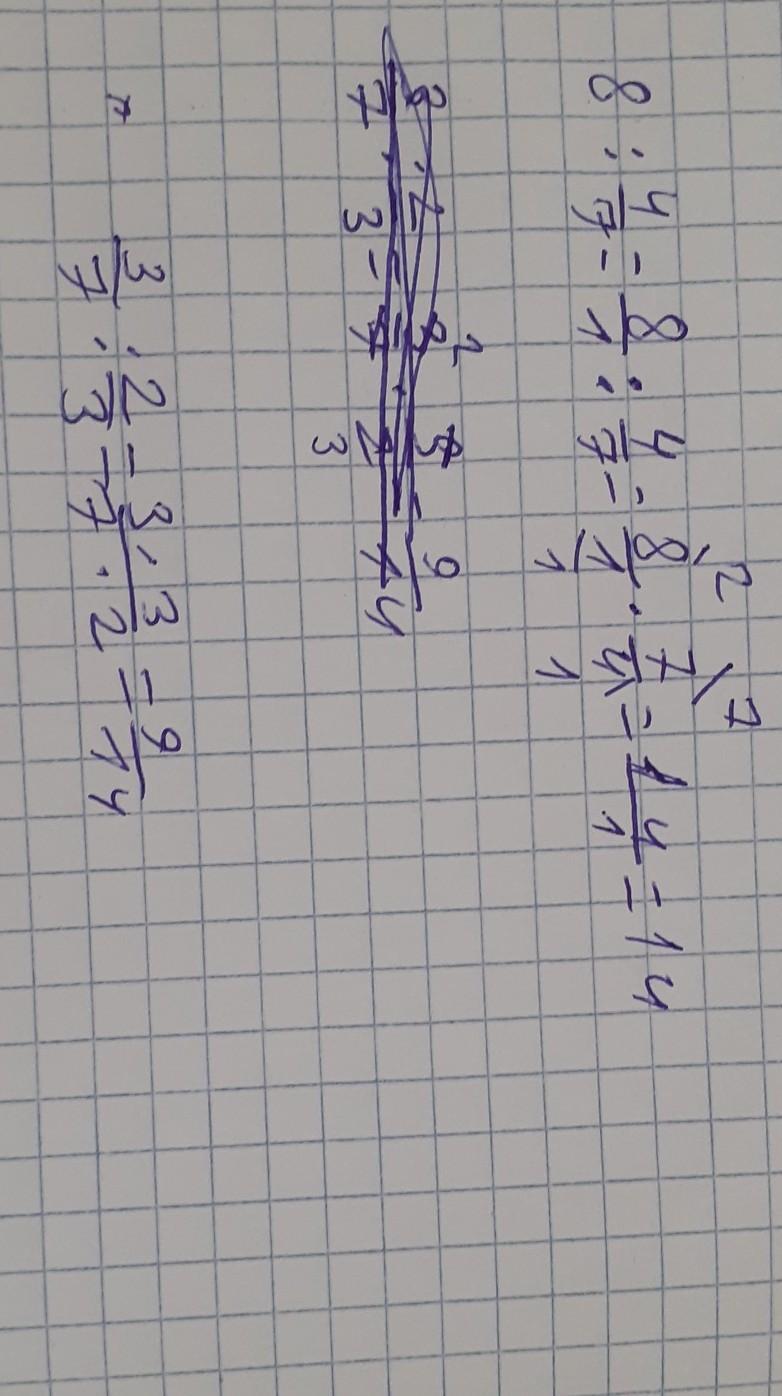 8 : 4/7 = 8/1 : 4/7 = 8/1 · 7/4 = 14/1 = 14
2 7
1 1
3/7 : 2/3 = 3·3/7·2 = 9/14